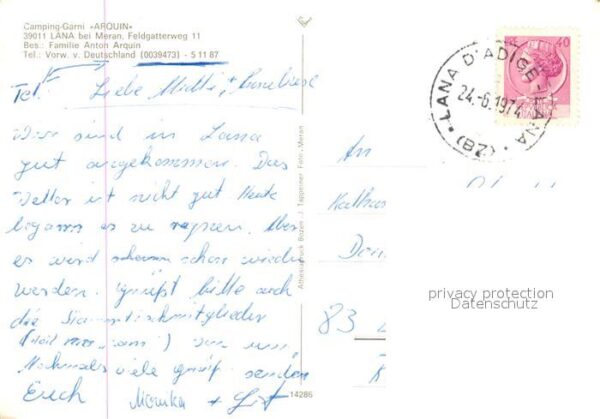 Camping-Garni «ARQUIN»
39011 LANA bei Meran, Feldgatterweg 11
Bes.: Familie Anton Arquin
Tel.: Vorw. v. Deutschland (0039473) - 5 11 87
Tel.
Liebe Mutti, +
Wir sind in Lana
gut angekommen. Das
Wetter ist nicht gut. Heute
begann es zu regnen. Aber
es wird schon wieder
werden. Grüßt bitte auch
die Stammtischmitglieder
von uns
Nochmals viele Grüße senden
Euch Monika +
Athesiadruck Bozen - J. Tappeiner Foto, Meran
14286
40
LANA D'ADIGE - LANA
24.-6.1974
(BZ)
An
Don
83
privacy protection
Datenschutz